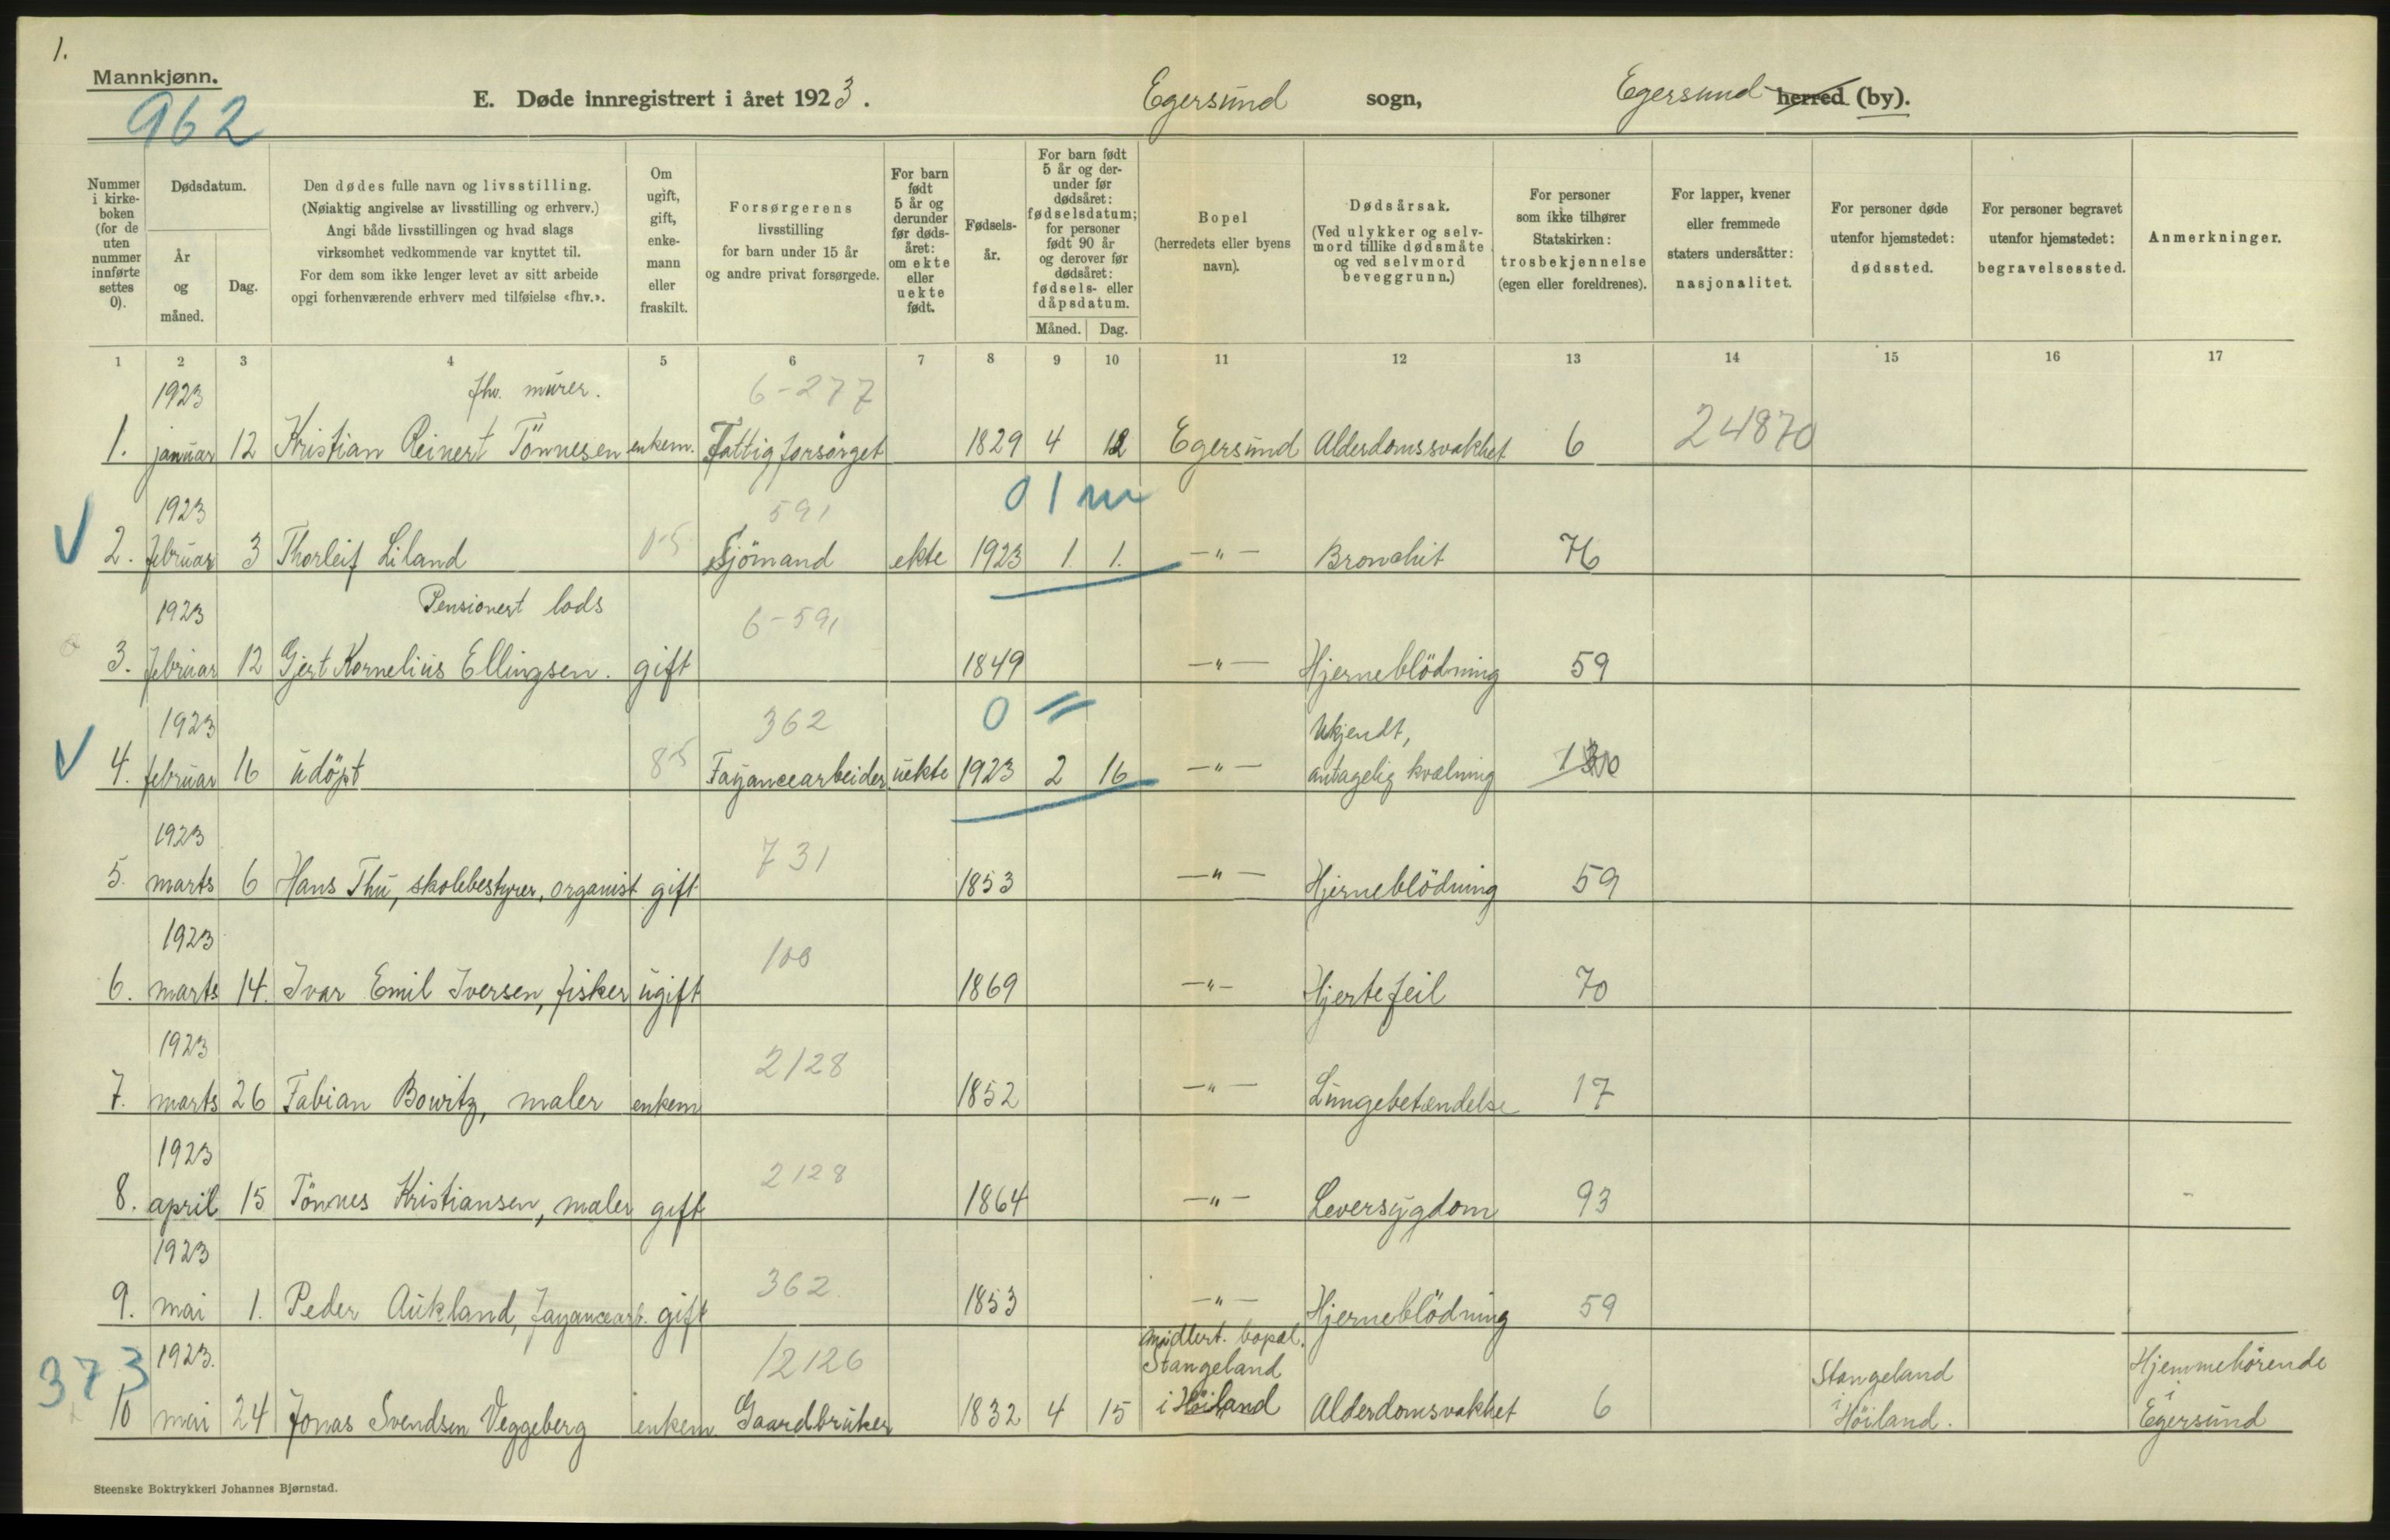 1.
Mannkjønn.
962
E. Døde innregistrert i året 1923.
Egersund sogn,
Egersund herred (by).
Nummer i kirkeboken (for de uten nummer innførte settes 0).
Dødsdatum.
År og måned.
Dag.
Den dødes fulle navn og livsstilling.
(Nøiaktig angivelse av livsstilling og erhverv.)
Angi både livsstillingen og hvad slags
virksomhet vedkommende var knyttet til.
For dem som ikke lenger levet av sitt arbeide
opgi forhenværende erhverv med tilføielse «fhv.».
Om ugift, gift, enkemann eller fraskilt.
Forsørgerens
livsstilling
for barn under 15 år
og andre privat forsørgede.
For barn født 5 år og derunder før dødsåret: om ekte eller uekte født.
Fødselsår.
For barn født 5 år og derunder før dødsåret: fødselsdatum; for personer født 90 år og derover før dødsåret: fødsels- eller dåpsdatum.
Måned. Dag.
Bopel
(herredets eller byens
navn).
Dødsårsak.
(Ved ulykker og selvmord tillike dødsmåte og ved selvmord beveggrunn.)
For personer
som ikke tilhører
Statskirken:
trosbekjennelse
(egen eller foreldrenes).
For lapper, kvener
eller fremmede
staters undersåtter:
nasjonalitet.
For personer døde
utenfor hjemstedet:
dødssted.
For personer begravet
utenfor hjemstedet:
begravelsessted.
Anmerkninger.
1 2 3 4 5 6 7 8 9 10 11 12 13 14 15 16 17
1923 fhv. murer. 6-277
1. januar 12 Kristian Reinert Tönnesen enkem. Fattigforsörget 1829 4 12 Egersund Alderdomssvakhet 6 24870
1923 591 0 1 m
2. februar 3 Thorleif Liland Sjömand ekte 1923 1. 1. -"- Bronchit 76
1923 Pensionert lods 6-591
3. februar 12 Gjert Kornelius Ellingsen. gift 1849 -"- Hjerneblödning 59
1923 362 0 Ukjendt,
4. februar 16 udöpt 85 Fayancearbeider uekte 1923 2 16 -"- antagelig kvælning
1923 731
5. marts 6 Hans Thu, skolebestyrer, organist gift 1853 -"- Hjerneblödning 59
1923 100
6. marts 14. Ivar Emil Iversen, fisker ugift 1869 -"- Hjertefeil 70
1923 2128
7. marts 26 Fabian Bowitz, maler enkem 1852 -"- Lungebetændelse 17
1923 2128
8. april 15 Tönnes Kristiansen, maler gift 1864 -"- Leversygdom 93
1923 362
9. mai 1. Peder Aukland, fayancearb. gift 1853 -"- Hjerneblödning 59
373 1923. 12126 midlert. bopæl. Stangeland Stangeland Hjemmehörende
10 mai 24 Jonas Svendsen Veggeberg enkem. Gaardbruker 1832 4 15 i Höiland Alderdomsvakhet 6 i Höiland. i Egersund
Steenske Boktrykkeri Johannes Bjørnstad.